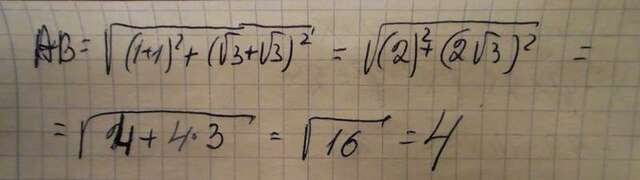 AB = √((1+1)² + (√3+√3)²) = √((2)² + (2√3)²) =
= √(4 + 4·3) = √16 = 4